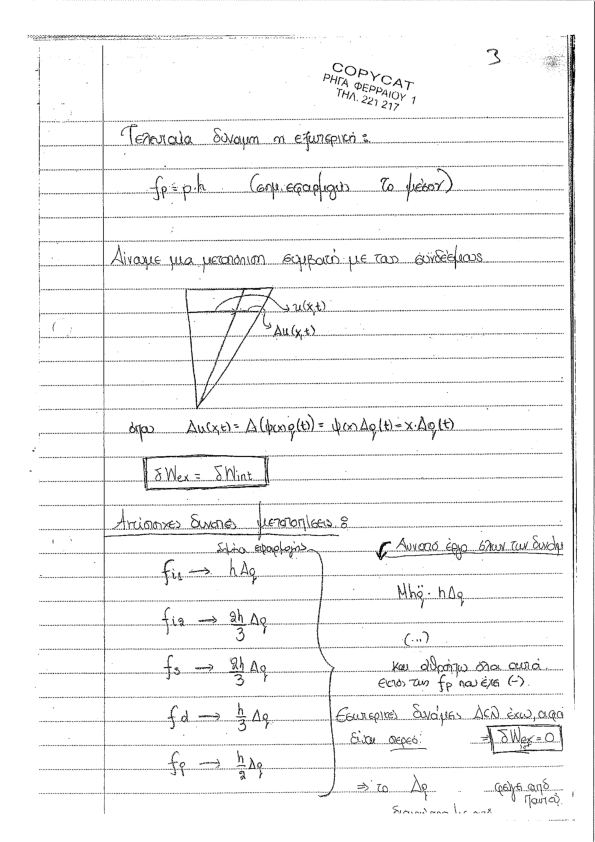 3
COPYCAT
ΡΗΓΑ ΦΕΡΡΑΙΟΥ 1
ΤΗΛ. 221 217
Τελευταία δύναμη η εξωτερική :
fp = p·h (σημ. εφαρμογής το μέσον)
Δίναμε μια μετατόπιση συμβατή με τους συνδέσμους
u(x,t)
Δu(x,t)
όπου Δu(x,t) = Δ(ψ(x)q(t)) = ψ(x)Δq(t) = x·Δq(t)
δWex = δWint
Αντίστοιχες δυνατές μετατοπίσεις :
Σημεία εφαρμογής
fi1 → hΔq
fi2 → 2h/3 Δq
fs → 2h/3 Δq
fd → h/3 Δq
fp → h/2 Δq
Δυνατό έργο όλων των δυνάμ
Mhq̈ · hΔq
(...)
και αθροίζω όλα αυτά
εκτός των fp που έχει (-).
Εσωτερικές δυνάμεις ΔΕΝ έχω, αφού
είναι στερεό: ⇒ δWex = 0
⇒ το Δq φεύγει από
παντού.